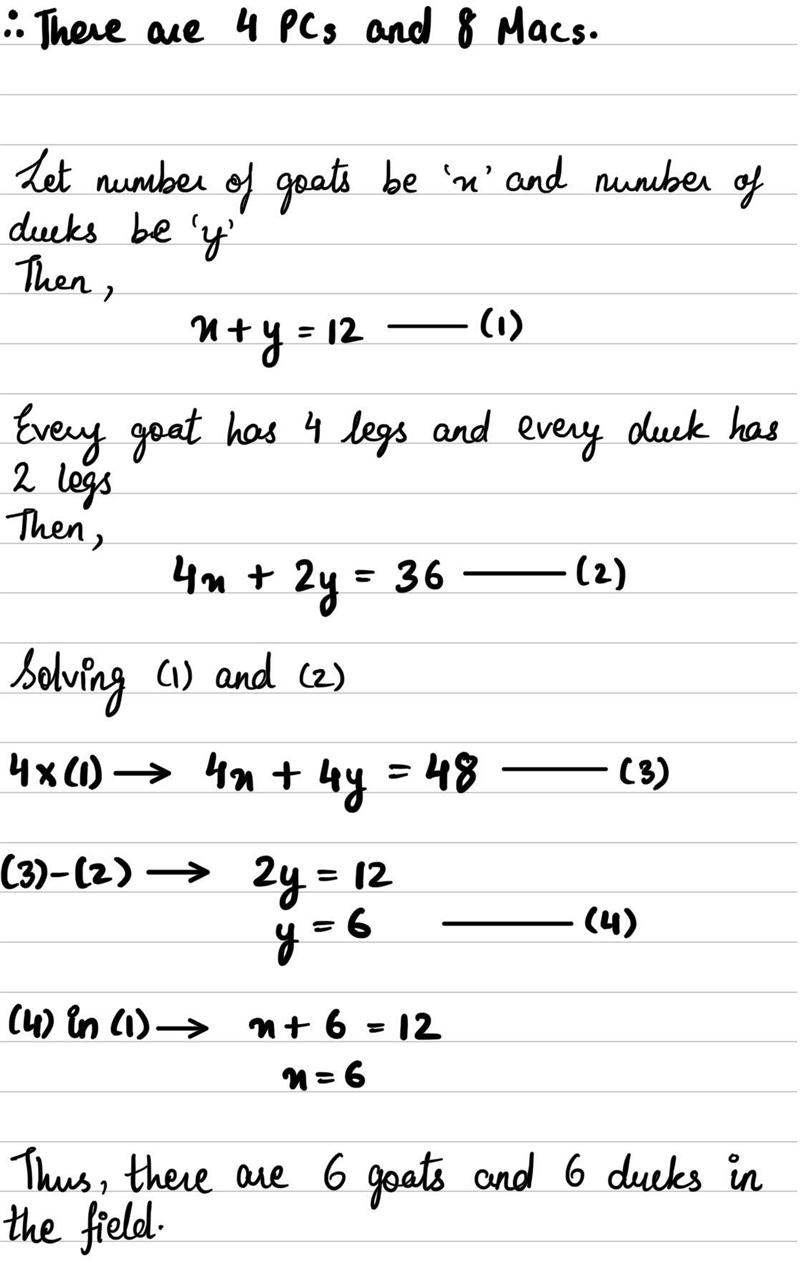 ∴ There are 4 PCs and 8 Macs.
Let number of goats be 'x' and number of
ducks be 'y'
Then,
x + y = 12 —— (1)
Every goat has 4 legs and every duck has
2 legs
Then,
4x + 2y = 36 —— (2)
Solving (1) and (2)
4×(1) → 4x + 4y = 48 —— (3)
(3)-(2) → 2y = 12
y = 6 —— (4)
(4) in (1) → x + 6 = 12
x = 6
Thus, there are 6 goats and 6 ducks in
the field.